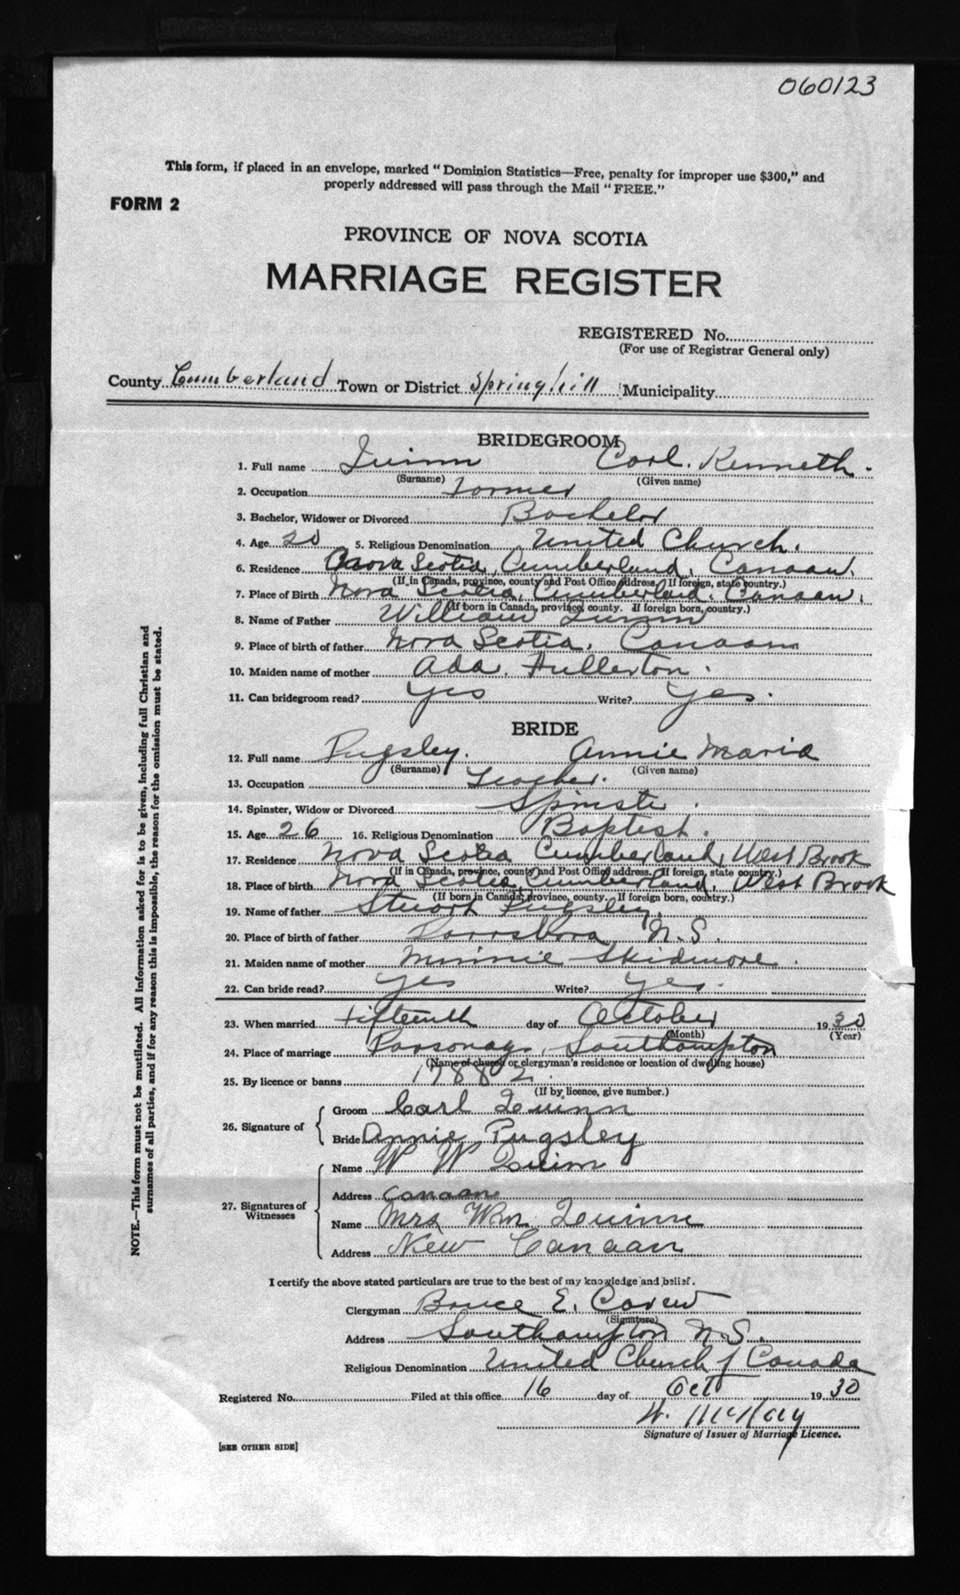 060123
This form, if placed in an envelope, marked "Dominion Statistics—Free, penalty for improper use $300," and
properly addressed will pass through the Mail "FREE."
FORM 2
PROVINCE OF NOVA SCOTIA
MARRIAGE REGISTER
REGISTERED No.
(For use of Registrar General only)
County Cumberland Town or District Springhill Municipality
BRIDEGROOM
1. Full name Quinn Carl Kenneth.
(Surname) (Given name)
2. Occupation Farmer
3. Bachelor, Widower or Divorced Bachelor
4. Age 20 5. Religious Denomination United Church.
6. Residence Nova Scotia, Cumberland, Canaan.
(If in Canada, province, county and Post Office address. If foreign, state country.)
7. Place of Birth Nova Scotia, Cumberland, Canaan.
(If born in Canada, province, county. If foreign born, country.)
8. Name of Father William Quinn
9. Place of birth of father Nova Scotia, Canaan
10. Maiden name of mother Ada. Fullerton.
11. Can bridegroom read? Yes Write? Yes.
BRIDE
12. Full name Pugsley. Annie Maria
(Surname) (Given name)
13. Occupation Teacher.
14. Spinster, Widow or Divorced Spinster.
15. Age 26 16. Religious Denomination Baptist.
17. Residence Nova Scotia Cumberland, West Brook
(If in Canada, province, county and Post Office address. If foreign, state country.)
18. Place of birth Nova Scotia, Cumberland, West Brook
(If born in Canada, province, county. If foreign born, country.)
19. Name of father Stuart Pugsley.
20. Place of birth of father Parrsboro N.S.
21. Maiden name of mother Minnie Skidmore.
22. Can bride read? Yes Write? Yes.
23. When married fifteenth day of October 1930
(Month) (Year)
24. Place of marriage Parsonage, Southampton
(Name of church or clergyman's residence or location of dwelling house)
25. By licence or banns 19882
(If by licence, give number.)
26. Signature of
Groom Carl Quinn
Bride Annie Pugsley
27. Signatures of Witnesses
Name W W Quinn
Address Canaan
Name Mrs Wm. Quinn
Address New Canaan
I certify the above stated particulars are true to the best of my knowledge and belief.
Clergyman Bruce E.
(Signature)
Address Southampton N.S.
Religious Denomination United Church of Canada
Registered No. Filed at this office 16 day of Oct 1930
W. McKay
Signature of Issuer of Marriage Licence.
[SEE OTHER SIDE]
NOTE.—This form must not be mutilated. All information asked for is to be given, including full Christian and
surnames of all parties, and if for any reason this is impossible, the reason for the omission must be stated.